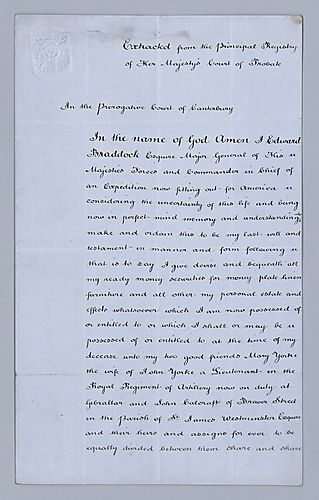 Extracted from the Principal Registry
of Her Majesty's Court of Probate
In the Prerogative Court of Canterbury
In the name of God Amen I Edward
Braddock Esquire Major General of His
Majesties Forces and Commander in Chief of
an Expedition now fitting out for America
considering the uncertainty of this life and being
now in perfect mind memory and understanding
make and ordain this to be my last will and
testament in manner and form following
that is to say I give devise and bequeath all
my ready money securities for money plate linen
furniture and all other my personal estate and
effects whatsoever which I am now possessed of
or entitled to or which I shall or may be
possessed of or entitled to at the time of my
decease unto my two good friends Mary Yorke
the wife of John Yorke a Lieutenant in the
Royal Regiment of Artillery now on duty at
Gibraltar and John Calcraft of Brewer Street
in the parish of St James Westminster Esquire
and their heirs and assigns for ever to be
equally divided between them share and share